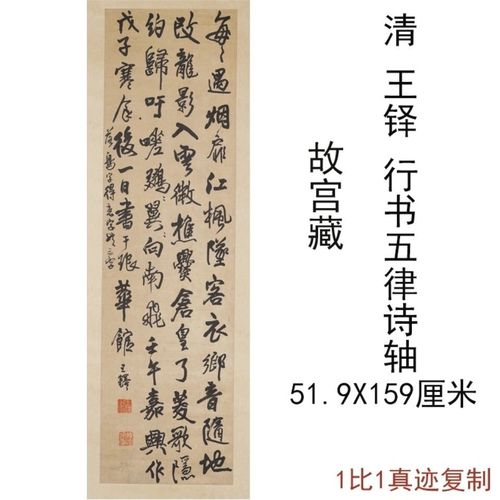 清 王铎 行书五律诗轴
故宫藏
51.9X159厘米
每〻遇烟霏江楓墜客衣鄉音隨地
改龍影入雲微樵爨倉皇了菱歌隱
約歸吁嗟翼向南飛壬午嘉興作
戊子寒食後一日書于琅華館 王鐸
1比1真迹复制